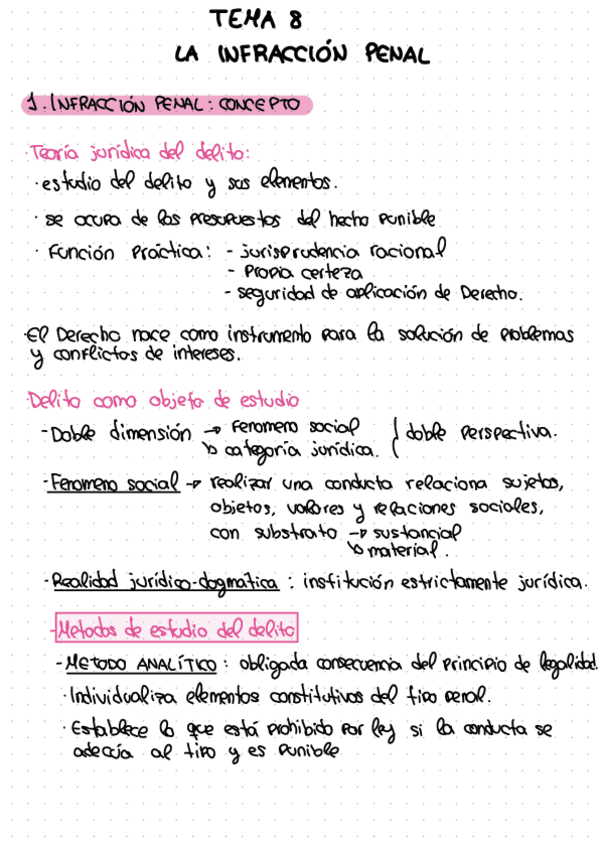 TEMA 8
LA INFRACCIÓN PENAL
1. INFRACCIÓN PENAL: CONCEPTO
·Teoría jurídica del delito:
·estudio del delito y sus elementos.
·se ocupa de los presupuestos del hecho punible
·Función práctica: - jurisprudencia racional
- Propia certeza
- seguridad de aplicación de Derecho.
·El Derecho nace como instrumento para la solución de problemas
y conflictos de intereses.
·Delito como objeto de estudio
-Doble dimensión → Fenomeno social
↳ categoría jurídica. } doble perspectiva.
-Fenomeno social → realizar una conducta relaciona sujetos,
objetos, valores y relaciones sociales,
con substrato → sustancial
↳ material.
-Realidad jurídico-dogmática : institución estrictamente jurídica.
-Metodos de estudio del delito
-METODO ANALÍTICO : obligada consecuencia del principio de legalidad.
·Individualiza elementos constitutivos del tipo penal.
·Establece lo que está prohibido por ley si la conducta se
adecúa al tipo y es punible